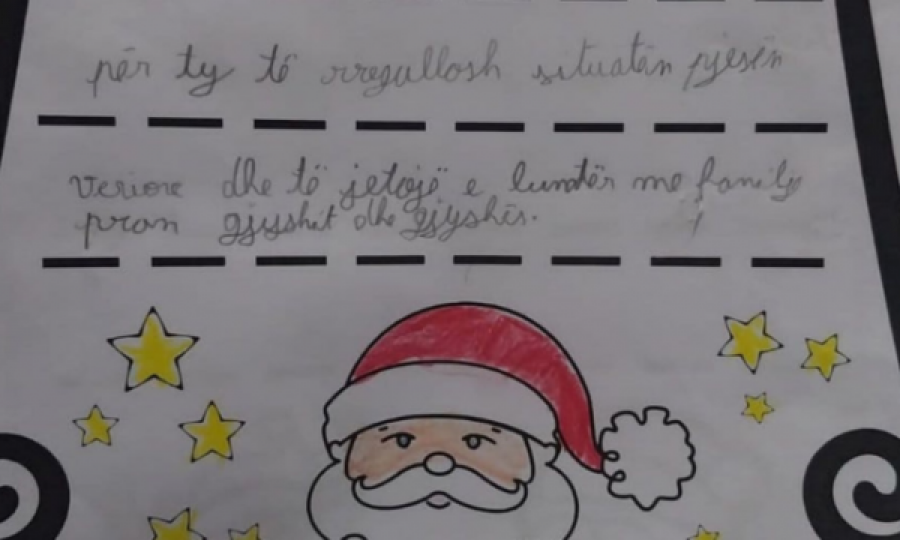 për ty të rregullosh situatën pjesën
veriore dhe të jetojë e lumtër me family
pran gjyshit dhe gjyshës.